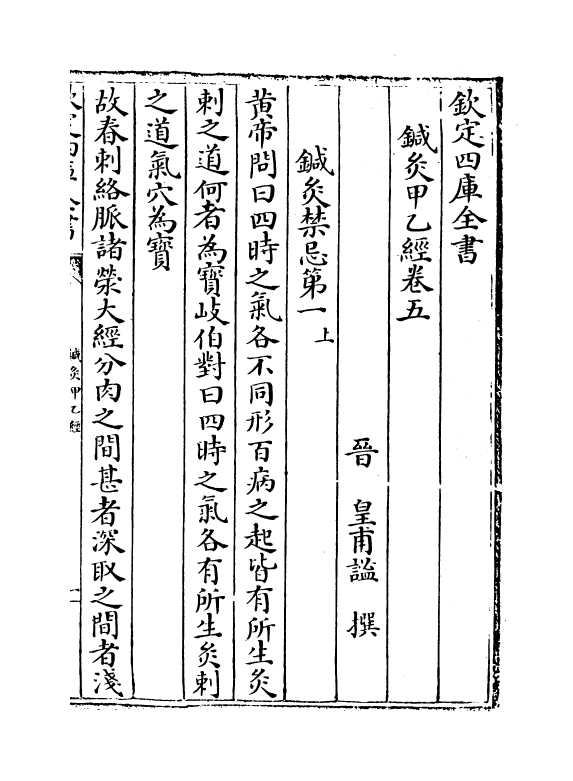 欽定四庫全書
鍼灸甲乙經卷五
晉 皇甫謐 撰
鍼灸禁忌第一上
黄帝問曰四時之氣各不同形百病之起皆有所生灸
刺之道何者為寳岐伯對曰四時之氣各有所生灸刺
之道氣穴為寳
故春刺絡脈諸滎大經分肉之間甚者深取之間者淺
鍼灸甲乙經